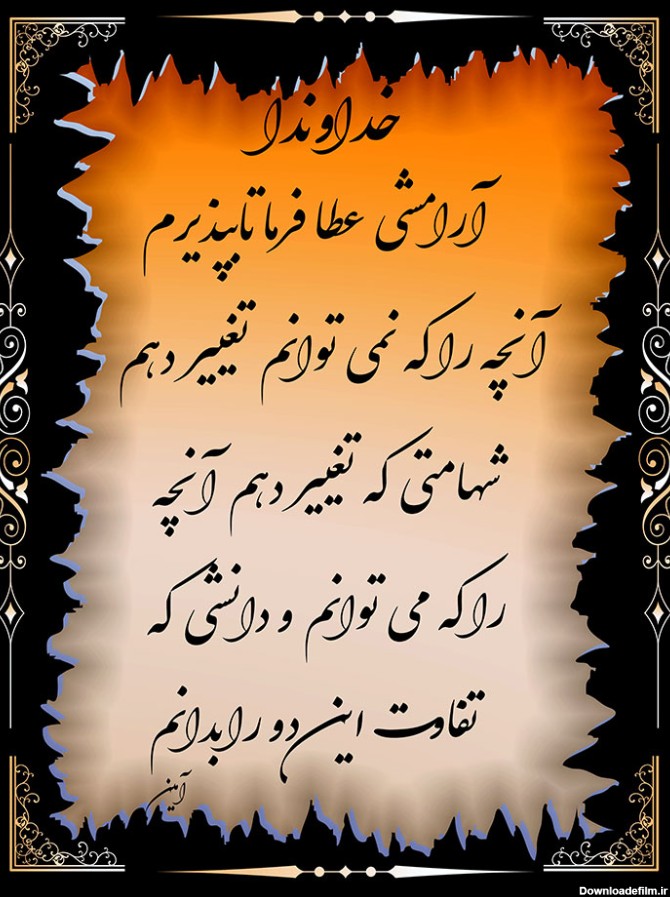 خداوندا
آرامشی عطا فرما تا بپذیرم
آنچه را که نمی توانم تغییر دهم
شهامتی که تغییر دهم آنچه
را که می توانم و دانشی که
تفاوت این دو را بدانم
آمین
Downloadefilm.ir